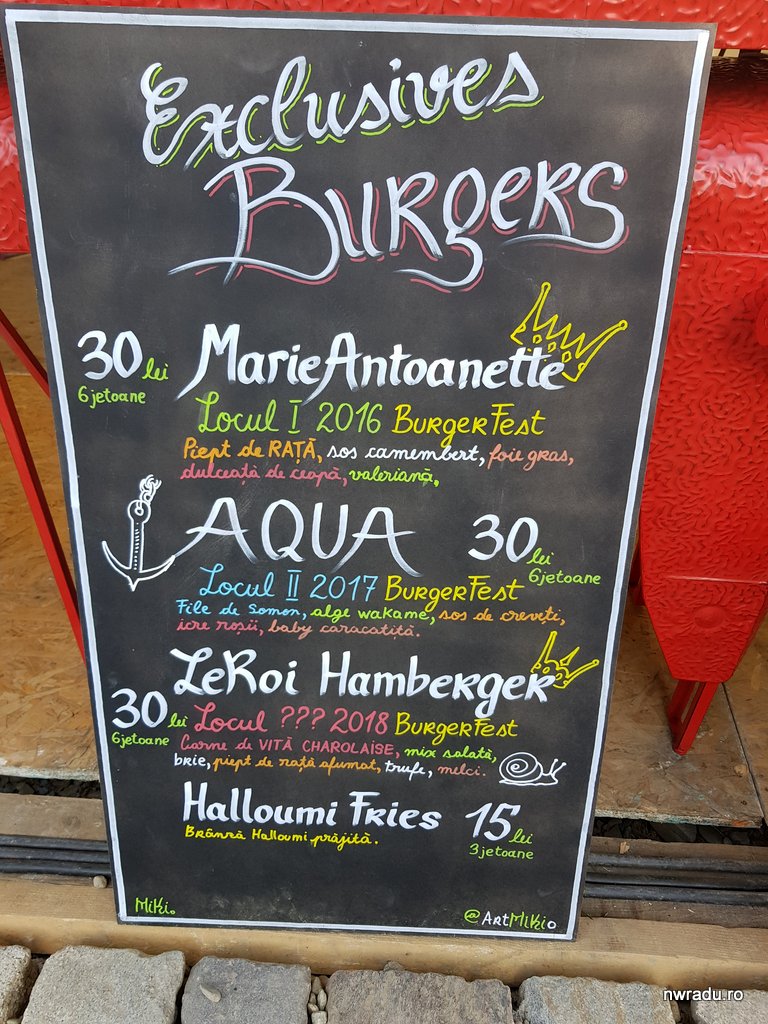 Exclusives
Burgers
30 lei
6 jetoane
Marie Antoanette
Locul I 2016 BurgerFest
Piept de RAȚĂ, sos camembert, foie gras,
dulceață de ceapă, valeriană,
AQUA
30 lei
6 jetoane
Locul II 2017 BurgerFest
File de Somon, alge wakame, sos de creveți,
icre roșii, baby caracatiță.
LeRoi Hamberger
30 lei
6 jetoane
Locul ??? 2018 BurgerFest
Carne de VITĂ CHAROLAISE, mix salată,
brie, piept de rață afumat, trufe, melci.
Halloumi Fries
15 lei
3 jetoane
Brânză Halloumi prăjită.
Miki.
@ArtMIKio
nwradu.ro